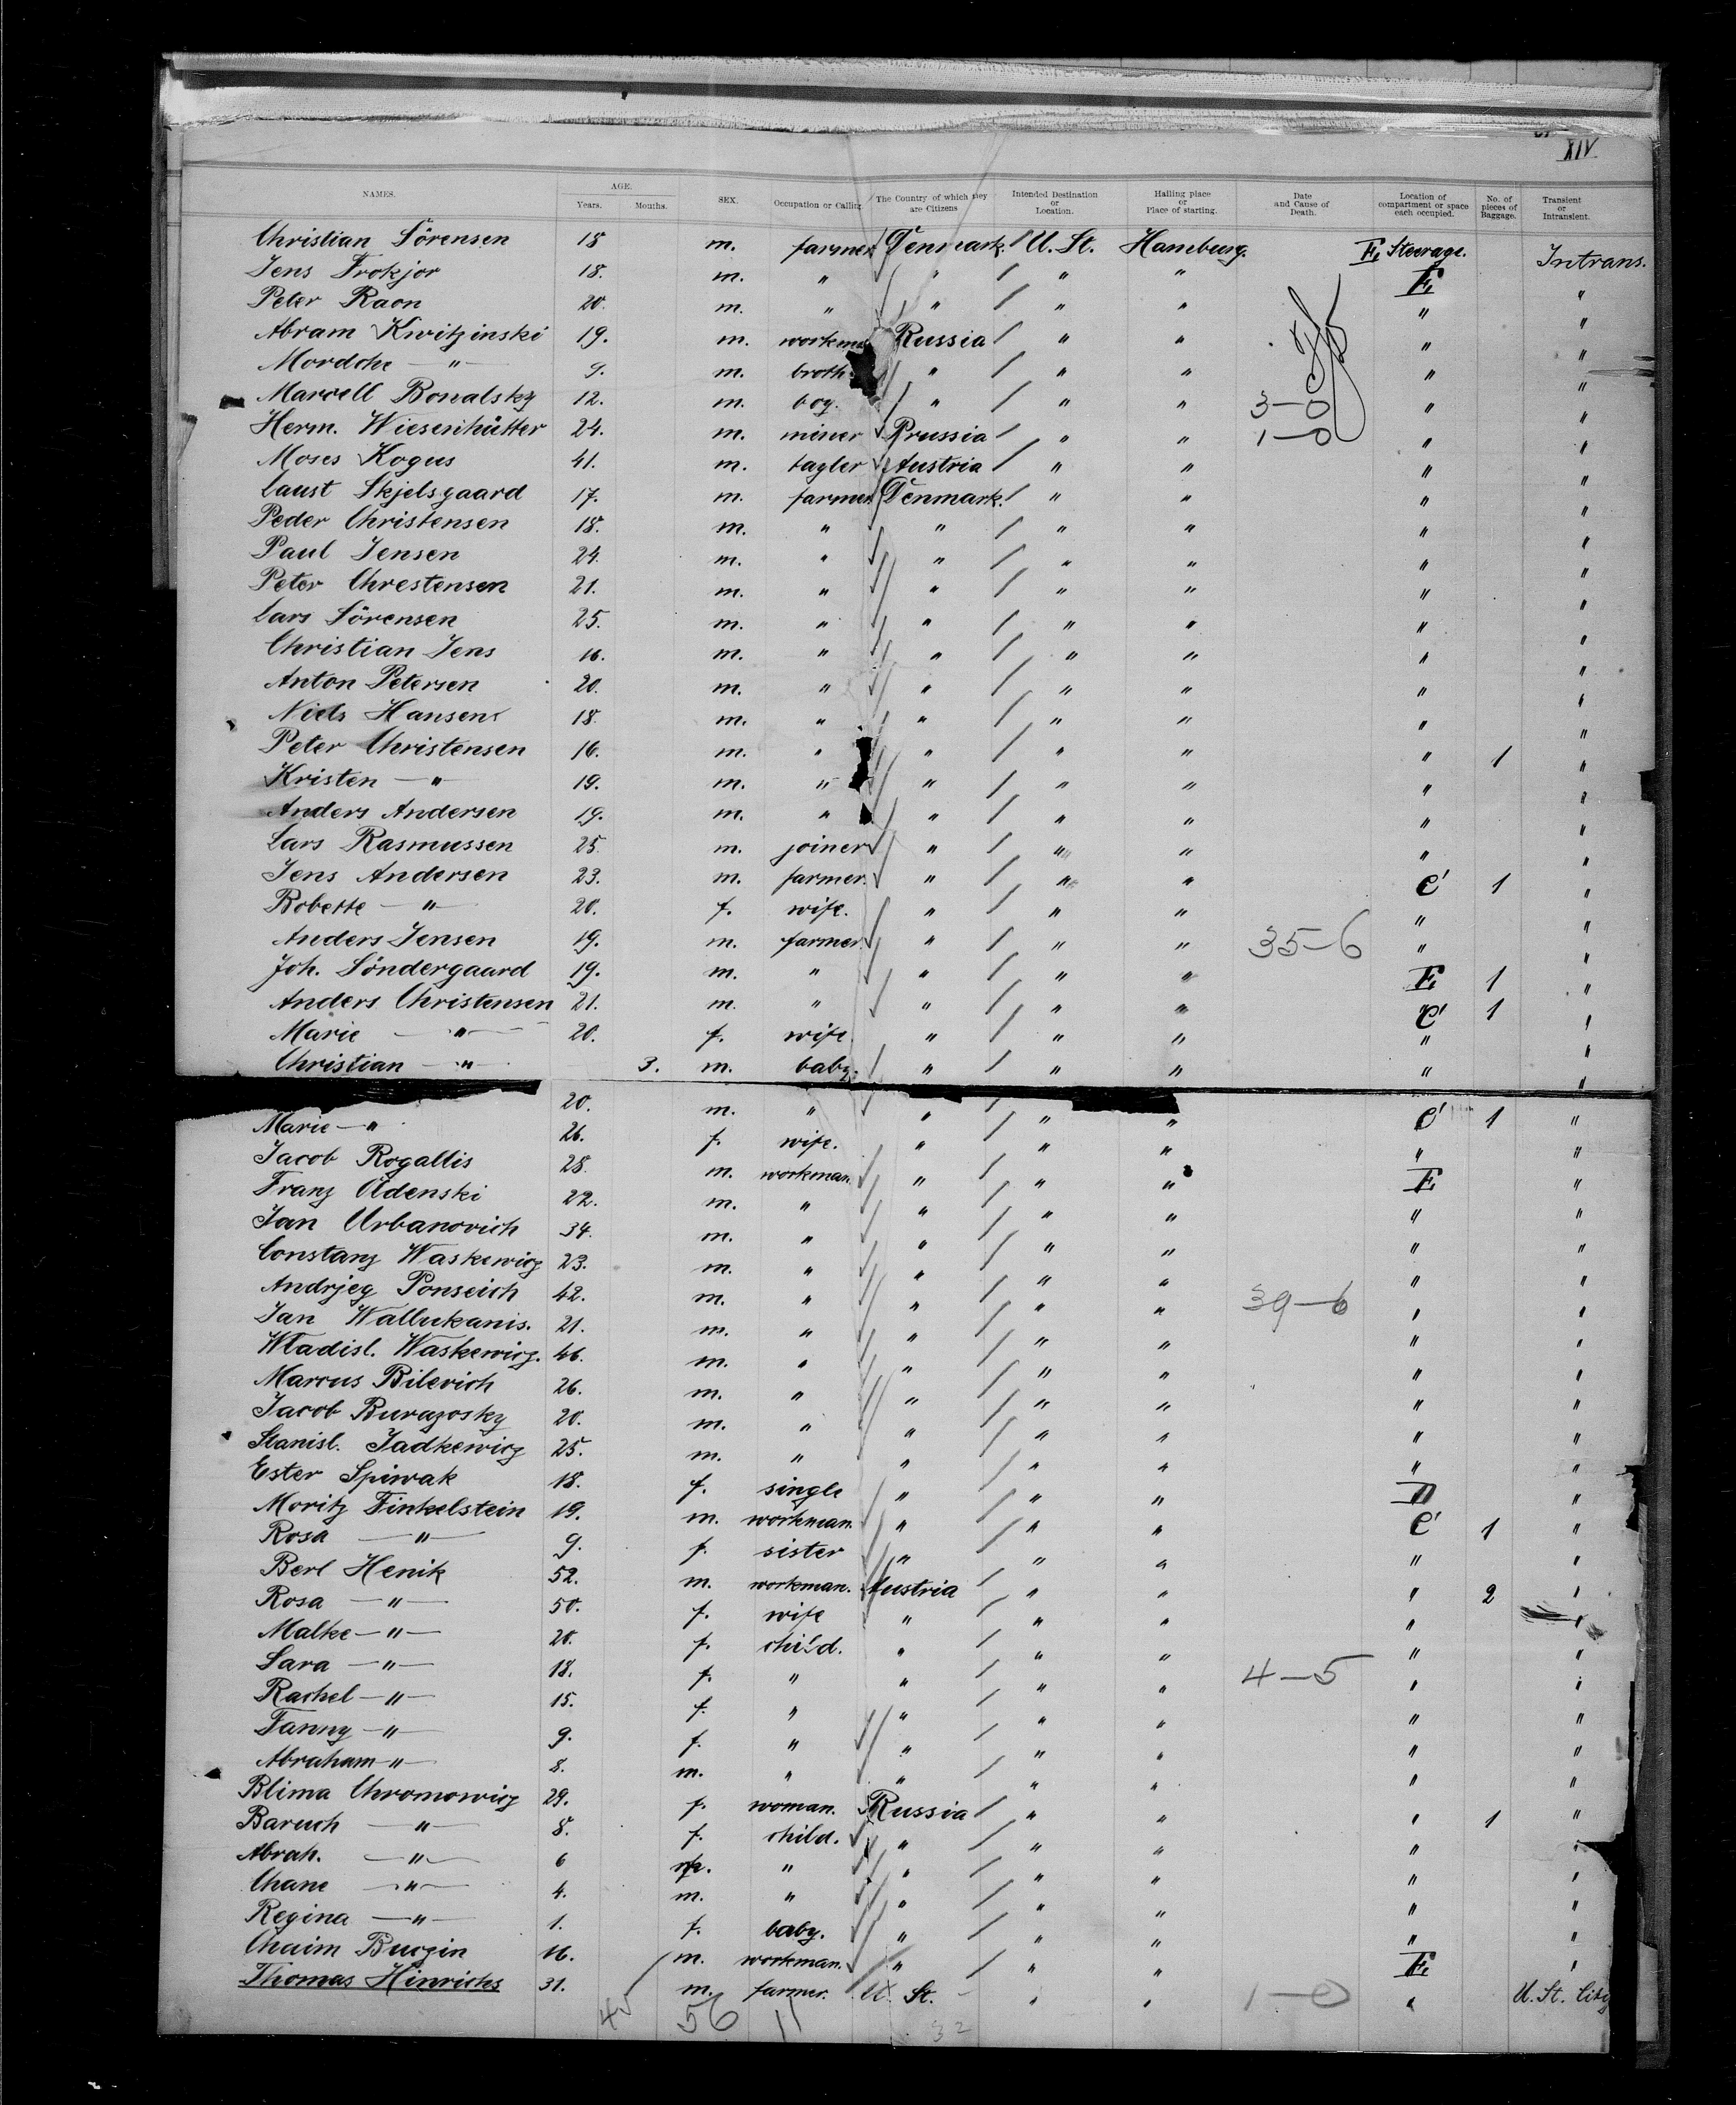 XIV
NAMES. AGE. Years. Months. SEX. Occupation or Calling The Country of which they are Citizens Intended Destination or Location. Hailing place or Place of starting. Date and Cause of Death. Location of compartment or space each occupied. No. of pieces of Baggage. Transient or Intransient.
Christian Sörensen 18 m. farmer Denmark. / U. St. Hamburg. E, Steerage. Intrans.
Jens Trokjor 18. m. " " / " " E, "
Peter Raon 20. m. " " / " " " "
Abram Kwitzinski 19. m. workma Russia / " " " "
Mordche — " — 9. m. broth " / " " " "
Marcell Bonalsky 12. m. boy. " / " " 3—0 " "
Herm. Wiesenhütter 24. m. miner Prussia / " " 1—0 " "
Moses Kogus 41. m. tagler Austria / " " " "
Laust Skjelsgaard 17. m. farmer Denmark. / " " " "
Peder Christensen 18. m. " " / " " " "
Paul Jensen 24. m. " " / " " " "
Peter Chrestensen 21. m. " " / " " " "
Lars Sörensen 25. m. " " / " " " "
Christian Jens 16. m. " " / " " " "
Anton Petersen 20. m. " " / " " " "
Niels Hansen 18. m. " " / " " " "
Peter Christensen 16. m. " " / " " " 1 "
Kristen — " — 19. m. " " / " " " "
Anders Andersen 19. m. " " / " " " "
Lars Rasmussen 25. m. joiner " / " " " "
Jens Andersen 23. m. farmer. " / " " C' 1 "
Bobette — " — 20. f. wife. " / " " " "
Anders Jensen 19. m. farmer. " / " " 35—6 " "
Joh. Söndergaard 19. m. " " / " " E, 1 "
Anders Christensen 21. m. " " / " " C' 1 "
Marie — " — 20. f. wife. " / " " " "
Christian — " — 3. m. baby. " / " " " "
20. m. " " / " " C' 1 "
Marie — " 26. f. wife. " / " " " "
Jacob Rogallis 28. m. workman. " / " " E, "
Franz Oldenski 22. m. " " / " " " "
Jan Urbanovich 34. m. " " / " " " "
Constanz Waskewicz 23. m. " " / " " " "
Andrjeg Ponseich 42. m. " " / " " 39—6 " "
Jan Wallukanis. 21. m. " " / " " " "
Wladisl. Waskewicz. 46. m. " " / " " " "
Marcus Bilevich 26. m. " " / " " " "
Jacob Burazosky 20. m. " " / " " " "
Stanisl. Jadkewicz 25. m. " " / " " " "
Ester Spiwak 18. f. single " / " " D "
Moritz Finkelstein 19. m. workman. " / " " C' 1 "
Rosa — " — 9. f. sister " / " " " "
Berl Henik 52. m. workman. Austria / " " " 2 "
Rosa — " — 50. f. wife " / " " " "
Malke — " — 20. f. child. " / " " " "
Sara — " — 18. f. " " / " " 4—5 " "
Rachel — " — 15. f. " " / " " " "
Fanny — " — 9. f. " " / " " " "
Abraham — " — 8. m. " " / " " " "
Blima Chromowicz 29. f. woman. Russia / " " " 1 "
Baruch — " — 8. f. child. " / " " " "
Abrah. — " — 6 m. " " / " " " "
Chane — " — 4. m. " " / " " " "
Regina — " — 1. f. baby. " / " " " "
Chaim Burgin 16. m. workman. " / " " E, "
Thomas Hinrichs 31. m. farmer. U. St. " " 1—0 " U. St. City
56 11 32